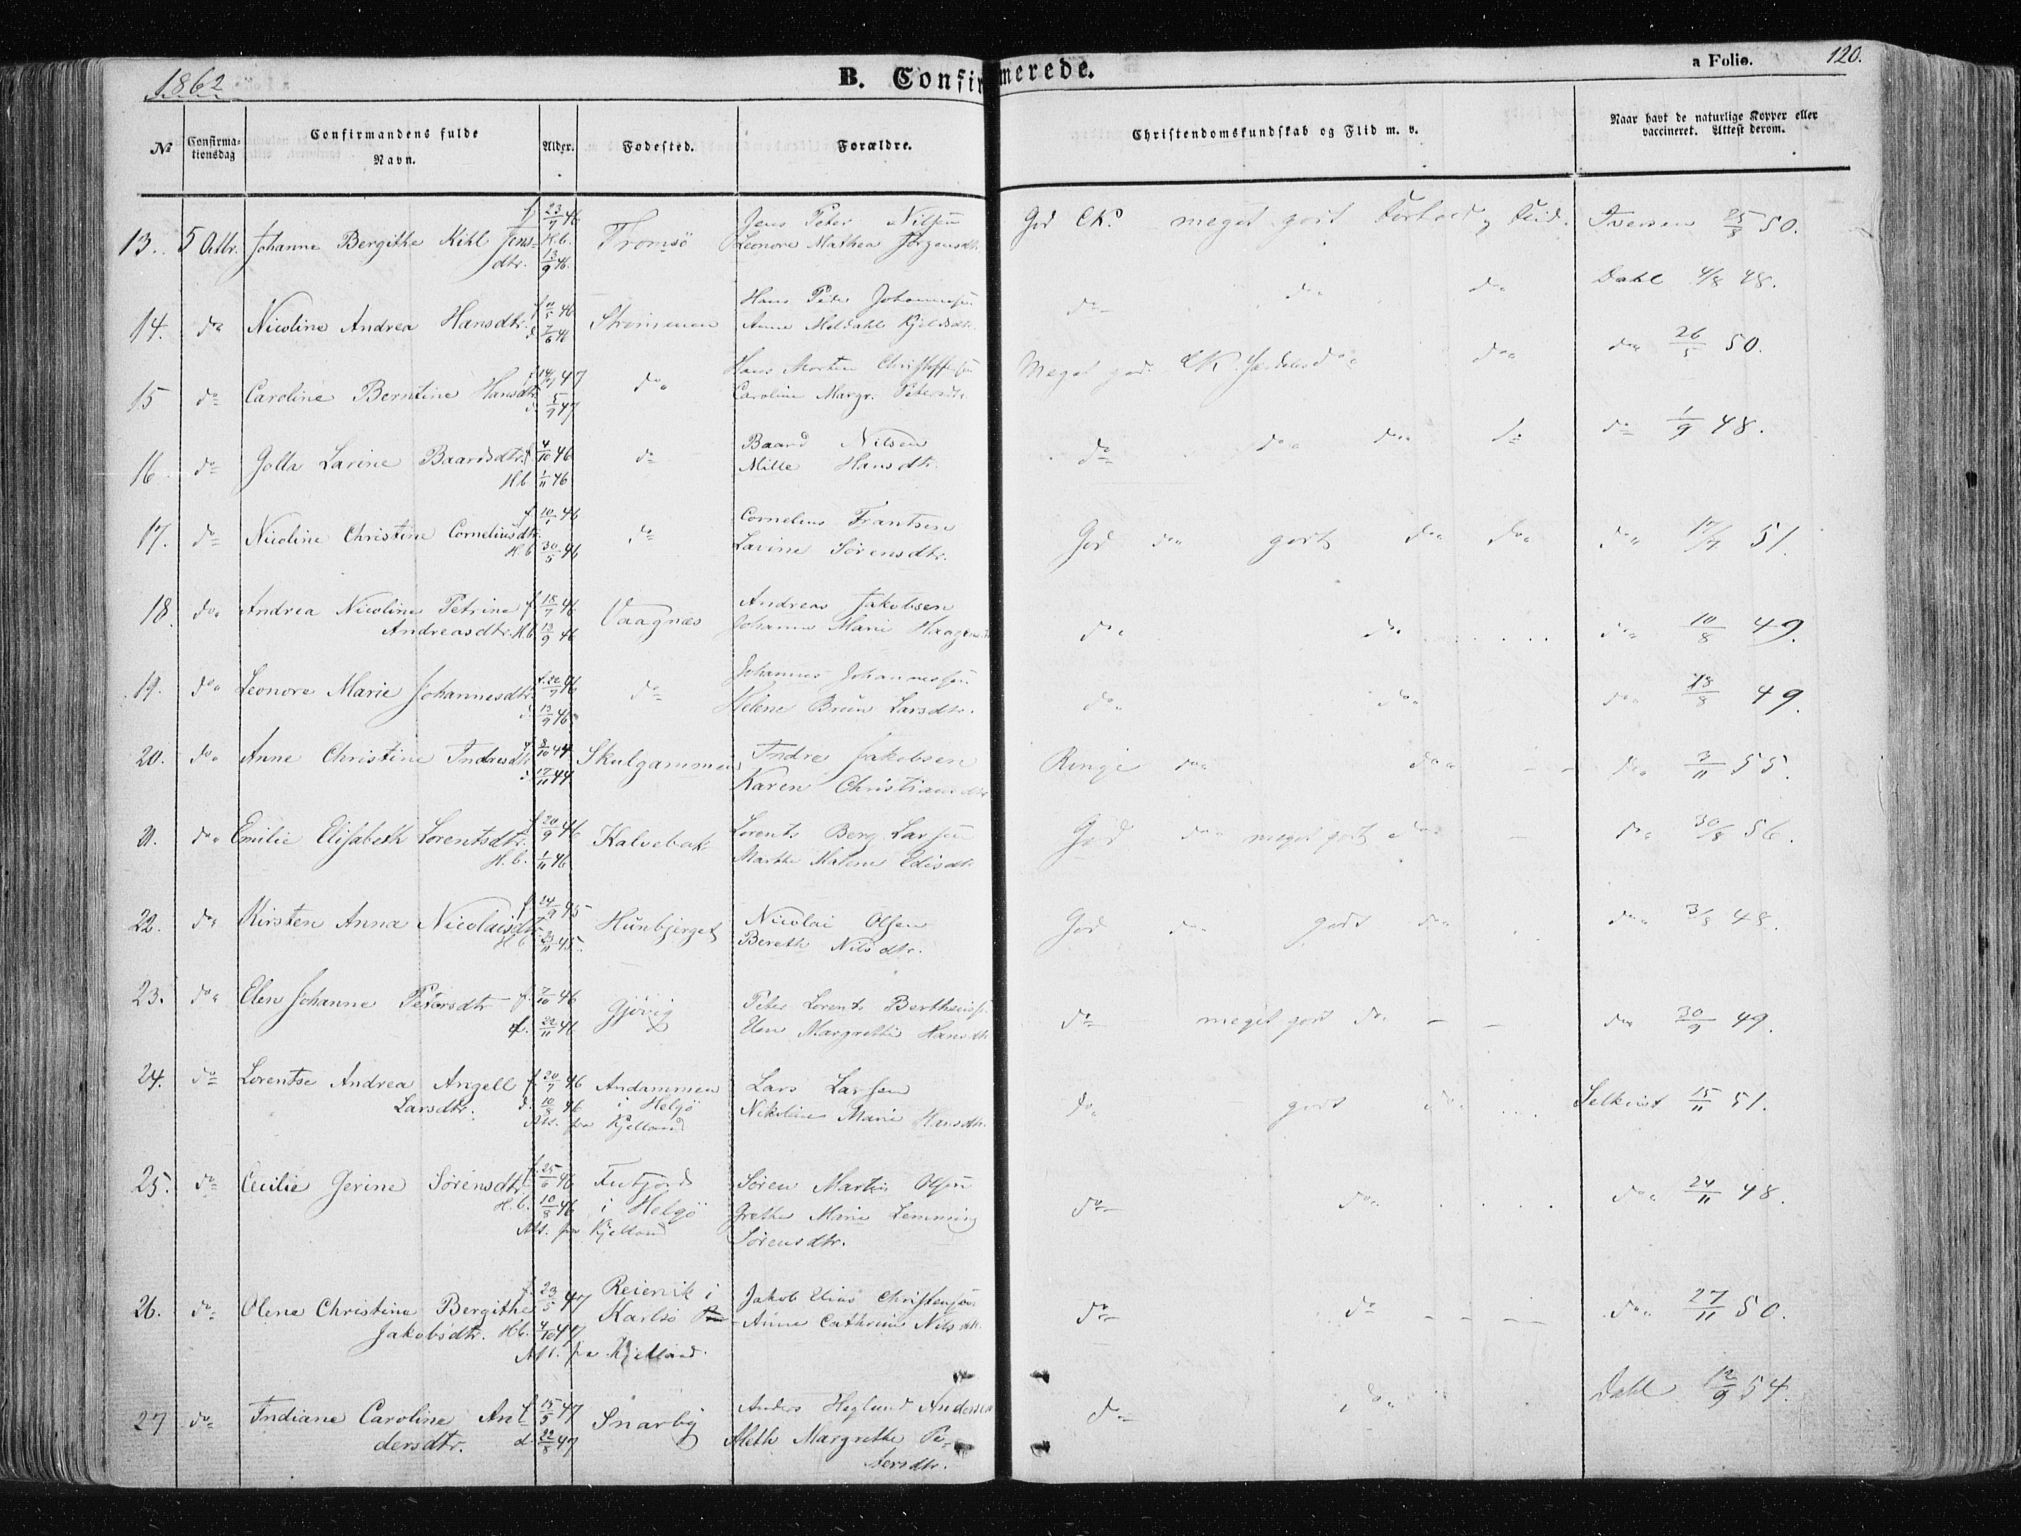 1862
B. Confirmerede.
a Folio.
120.
No
Confirmationsdag
Confirmandens fulde Navn.
Alder.
Fødested.
Forældre.
Christendomskundskab og Flid m. v.
Naar havt de naturlige Kopper eller vaccineret. Attest derom.
13. 5 Octbr. Johanne Bergithe Kihl Jens- f. 23/7 46 Tromsø Jens Peter Nilsen God CK. meget godt Forhold og Flid. Iversen 25/8 50.
dtr. H.b. 13/9 46. Leonore Mathea Jørgensdtr.
14. do Nicoline Andrea Hansdtr. Strømmen Hans Peter Johannessen do do do Dahl 4/8 48.
d. 7/6 46 Anne Meldahl Kjeldsdtr.
15 do Caroline Berntine Hansdtr. 47 do Hans Morten Christoffersen Meget god CK. do do do 26/5 50.
d. 5/9 47 Caroline Margr. Petersdtr.
16. do Golla Larine Baardsdtr. f. 4/10 46 do Baard Nilsen do do do do do 1/9 48.
H.b. 1/11 46 Mille Hansdtr.
17. do Nicoline Christine Corneliusdtr. f. 10/1 46 do Cornelius Frantsen God do godt do do do 17/7 51.
H.b. 30/5 46 Larine Sørensdtr.
18. do Andrea Nicoline Petrine f. 18/7 46 Vaagnæs Andreas Jakobsen do do do 10/8 49.
Andreasdtr. H.b. 13/9 46 Johanna Marie Haagensd
19. do Leonore Marie Johannesdtr. f. 22/7 46 do Johannes Johannessen do do do 18/8 49.
d. 13/9 46 Helene Bruun Larsdtr.
20. do Anne Christine Indresdtr. f. 8/10 44 Skulgammen Indre Jakobsen Ringe do do do 2/11 55.
d. 17/11 44 Karen Christiansdtr
21. do Emilie Elisabeth Lorentsdtr. f. 20/9 46 Kalvebak Lorents Berg Larsen God do meget godt do do 30/8 56.
H.b. 1/11 46 Marthe Malene Edisdtr.
22. do Kirsten Anna Nicolaisdtr. f. 24/9 45 Hunbjerget Nicolai Olsen God do godt do do 3/8 48.
H.b. 23/11 45. Bereth Nilsdtr.
23. do Elen Johanne Petersdtr f. 7/10 46 Gjøvig Peter Lorents Bertheus do meget godt do do 30/9 49.
d. 22/11 46 Elen Margrethe Hansdtr
24. do Lorentse Andrea Angell f. 20/7 46 Andammen Lars Larsen do godt do Selkvist 15/11 51.
Larsdtr. d. 10/8 46 i Helgø Nikoline Marie Hansdtr.
Att. fra Kjelland
25. do Cecilie Gerine Sørensdtr. f. 25/6 46 Futfjord Søren Martin Olsen do do do 24/11 48.
H.b. 10/8 46 i Helgø Grethe Marie Lemming
Att. fra Kjelland Sørensdtr.
26. do Olene Christine Bergithe f. 23/5 47 Reienik i Jakob Elias Christensen do do do 27/11 50.
Jakobsdtr. H.b. 4/10 47 Karlsø Anne Cathrine Nilsdtr.
Att. fra Kjelland.
27 do Indiane Caroline An- f. 15/5 47 Snarby Anders Heglund Andersen do do Dahl 12/9 54.
dersdtr. d. 22/8 47 Meth Margrethe Pe-
tersdtr.